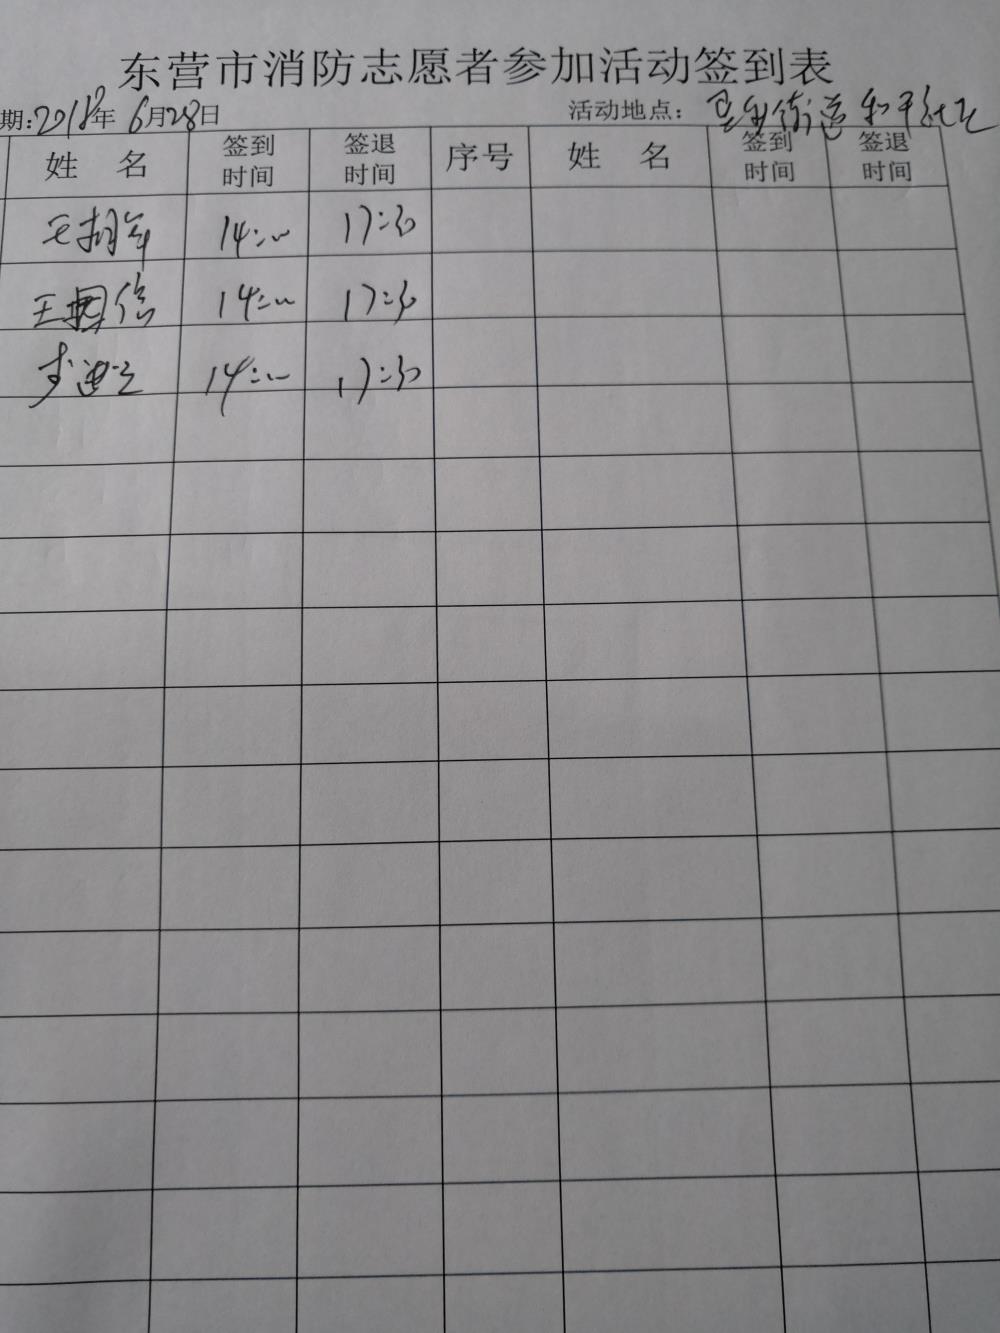 东营市消防志愿者参加活动签到表
期:2018年6月28日 活动地点: 街道和平社区
姓 名 签到时间 签退时间 序号 姓 名 签到时间 签退时间
14:00 17:30
王国信 14:00 17:30
李 14:00 17:30